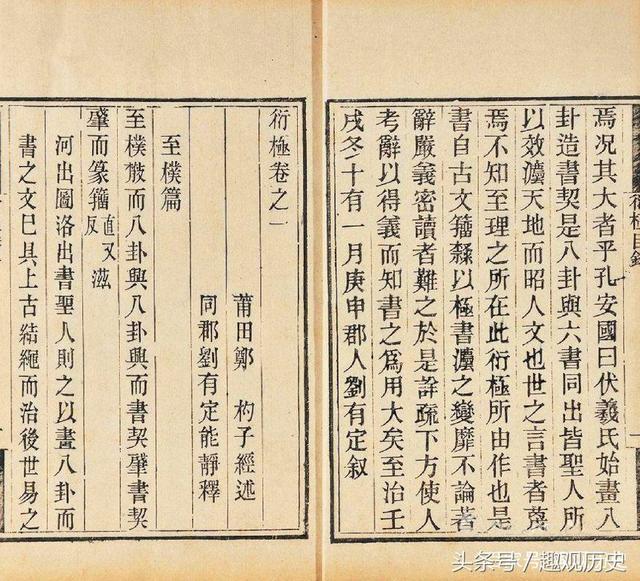 衍極目錄
焉况其大者乎孔安國曰伏羲氏始畫八
卦造書契是八卦與六書同出皆聖人所
以效灋天地而昭人文也世之言書者蔑
焉不知至理之所在此衍極所由作也是
書自古文籀隸以極書灋之變靡不論著
辭嚴義密讀者難之於是詳疏下方使人
考辭以得義而知書之為用大矣至治壬
戌冬十有一月庚申郡人劉有定叙
衍極卷之一
莆田鄭 杓子經述
同郡劉有定能靜釋
至樸篇
至樸㪚而八卦興八卦興而書契肇書契
肇而篆籀直又反滋
河出圖洛出書聖人則之以畫八卦而
書之文巳具上古結繩而治後世易之
头条号/趣观历史